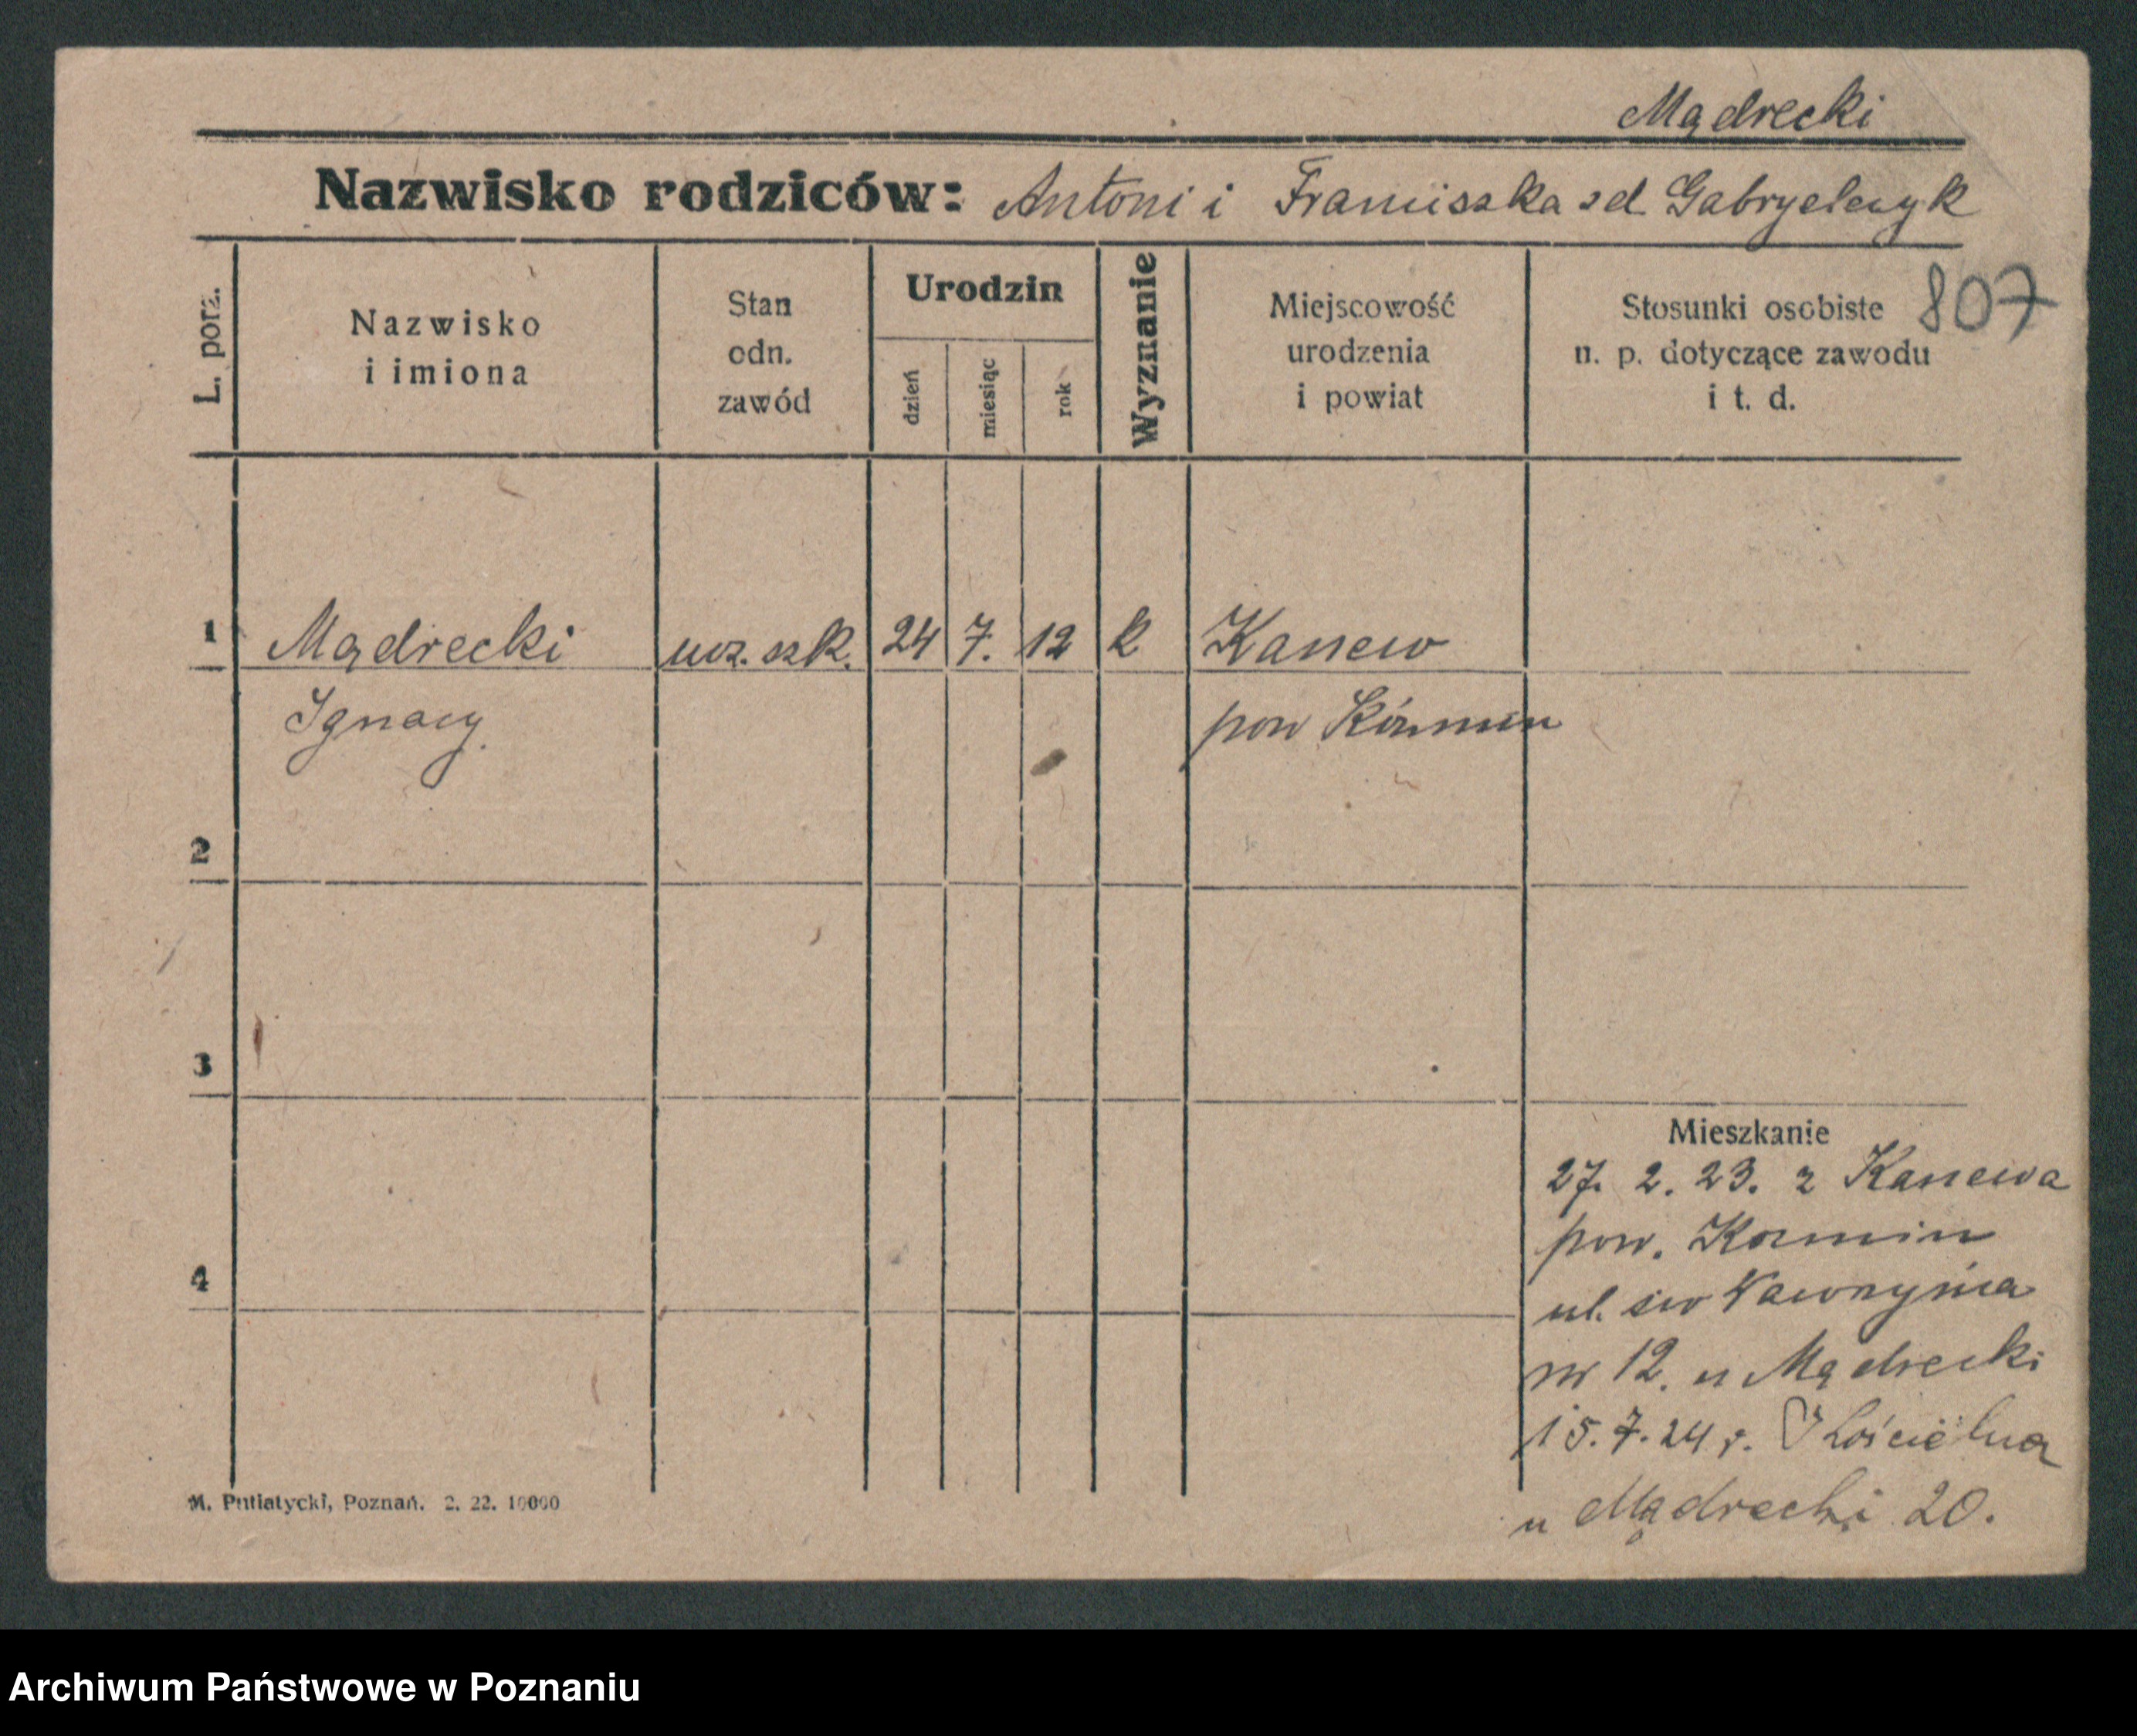 Mądrecki
Nazwisko rodziców: Antoni i Franciszka zd Gabryelczyk
807
L. porz.
Nazwisko
i imiona
Stan
odn.
zawód
Urodzin
dzień
miesiąc
rok
Wyznanie
Miejscowość
urodzenia
i powiat
Stosunki osobiste
n. p. dotyczące zawodu
i t. d.
1 Mądrecki ucz. szk. 24 7. 12 k Kanew
Ignacy pow Koźmin
2
3
4
Mieszkanie
27. 2. 23. z Kanewa
pow. Kozmin
ul. sw Wawrzyńca
nr 12. u Mądrecki
15. 7. 24 r. Kościelna
u Mądrecki 20.
M. Putiatycki, Poznań. 2. 22. 10000
Archiwum Państwowe w Poznaniu